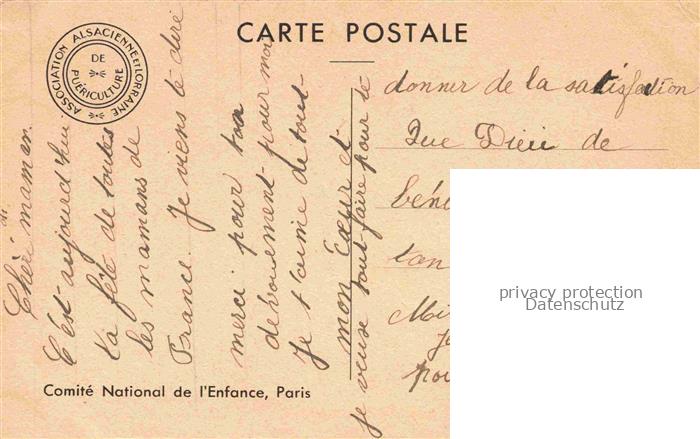 CARTE POSTALE
ASSOCIATION ALSACIENNE et LORRAINE
DE
PUÉRICULTURE
Chèri maman.
C'est aujourd'hui
la fête de toutes
les mamans de
France. Je viens te dire
merci pour ton
dévouement pour moi
Je t'aime de tout
mon Cœur et
je veuse tout faire pour te
donner de la satisfaction
Que Dieu de
béni
tan
Moi
Je
pou
Comité National de l'Enfance, Paris
privacy protection
Datenschutz